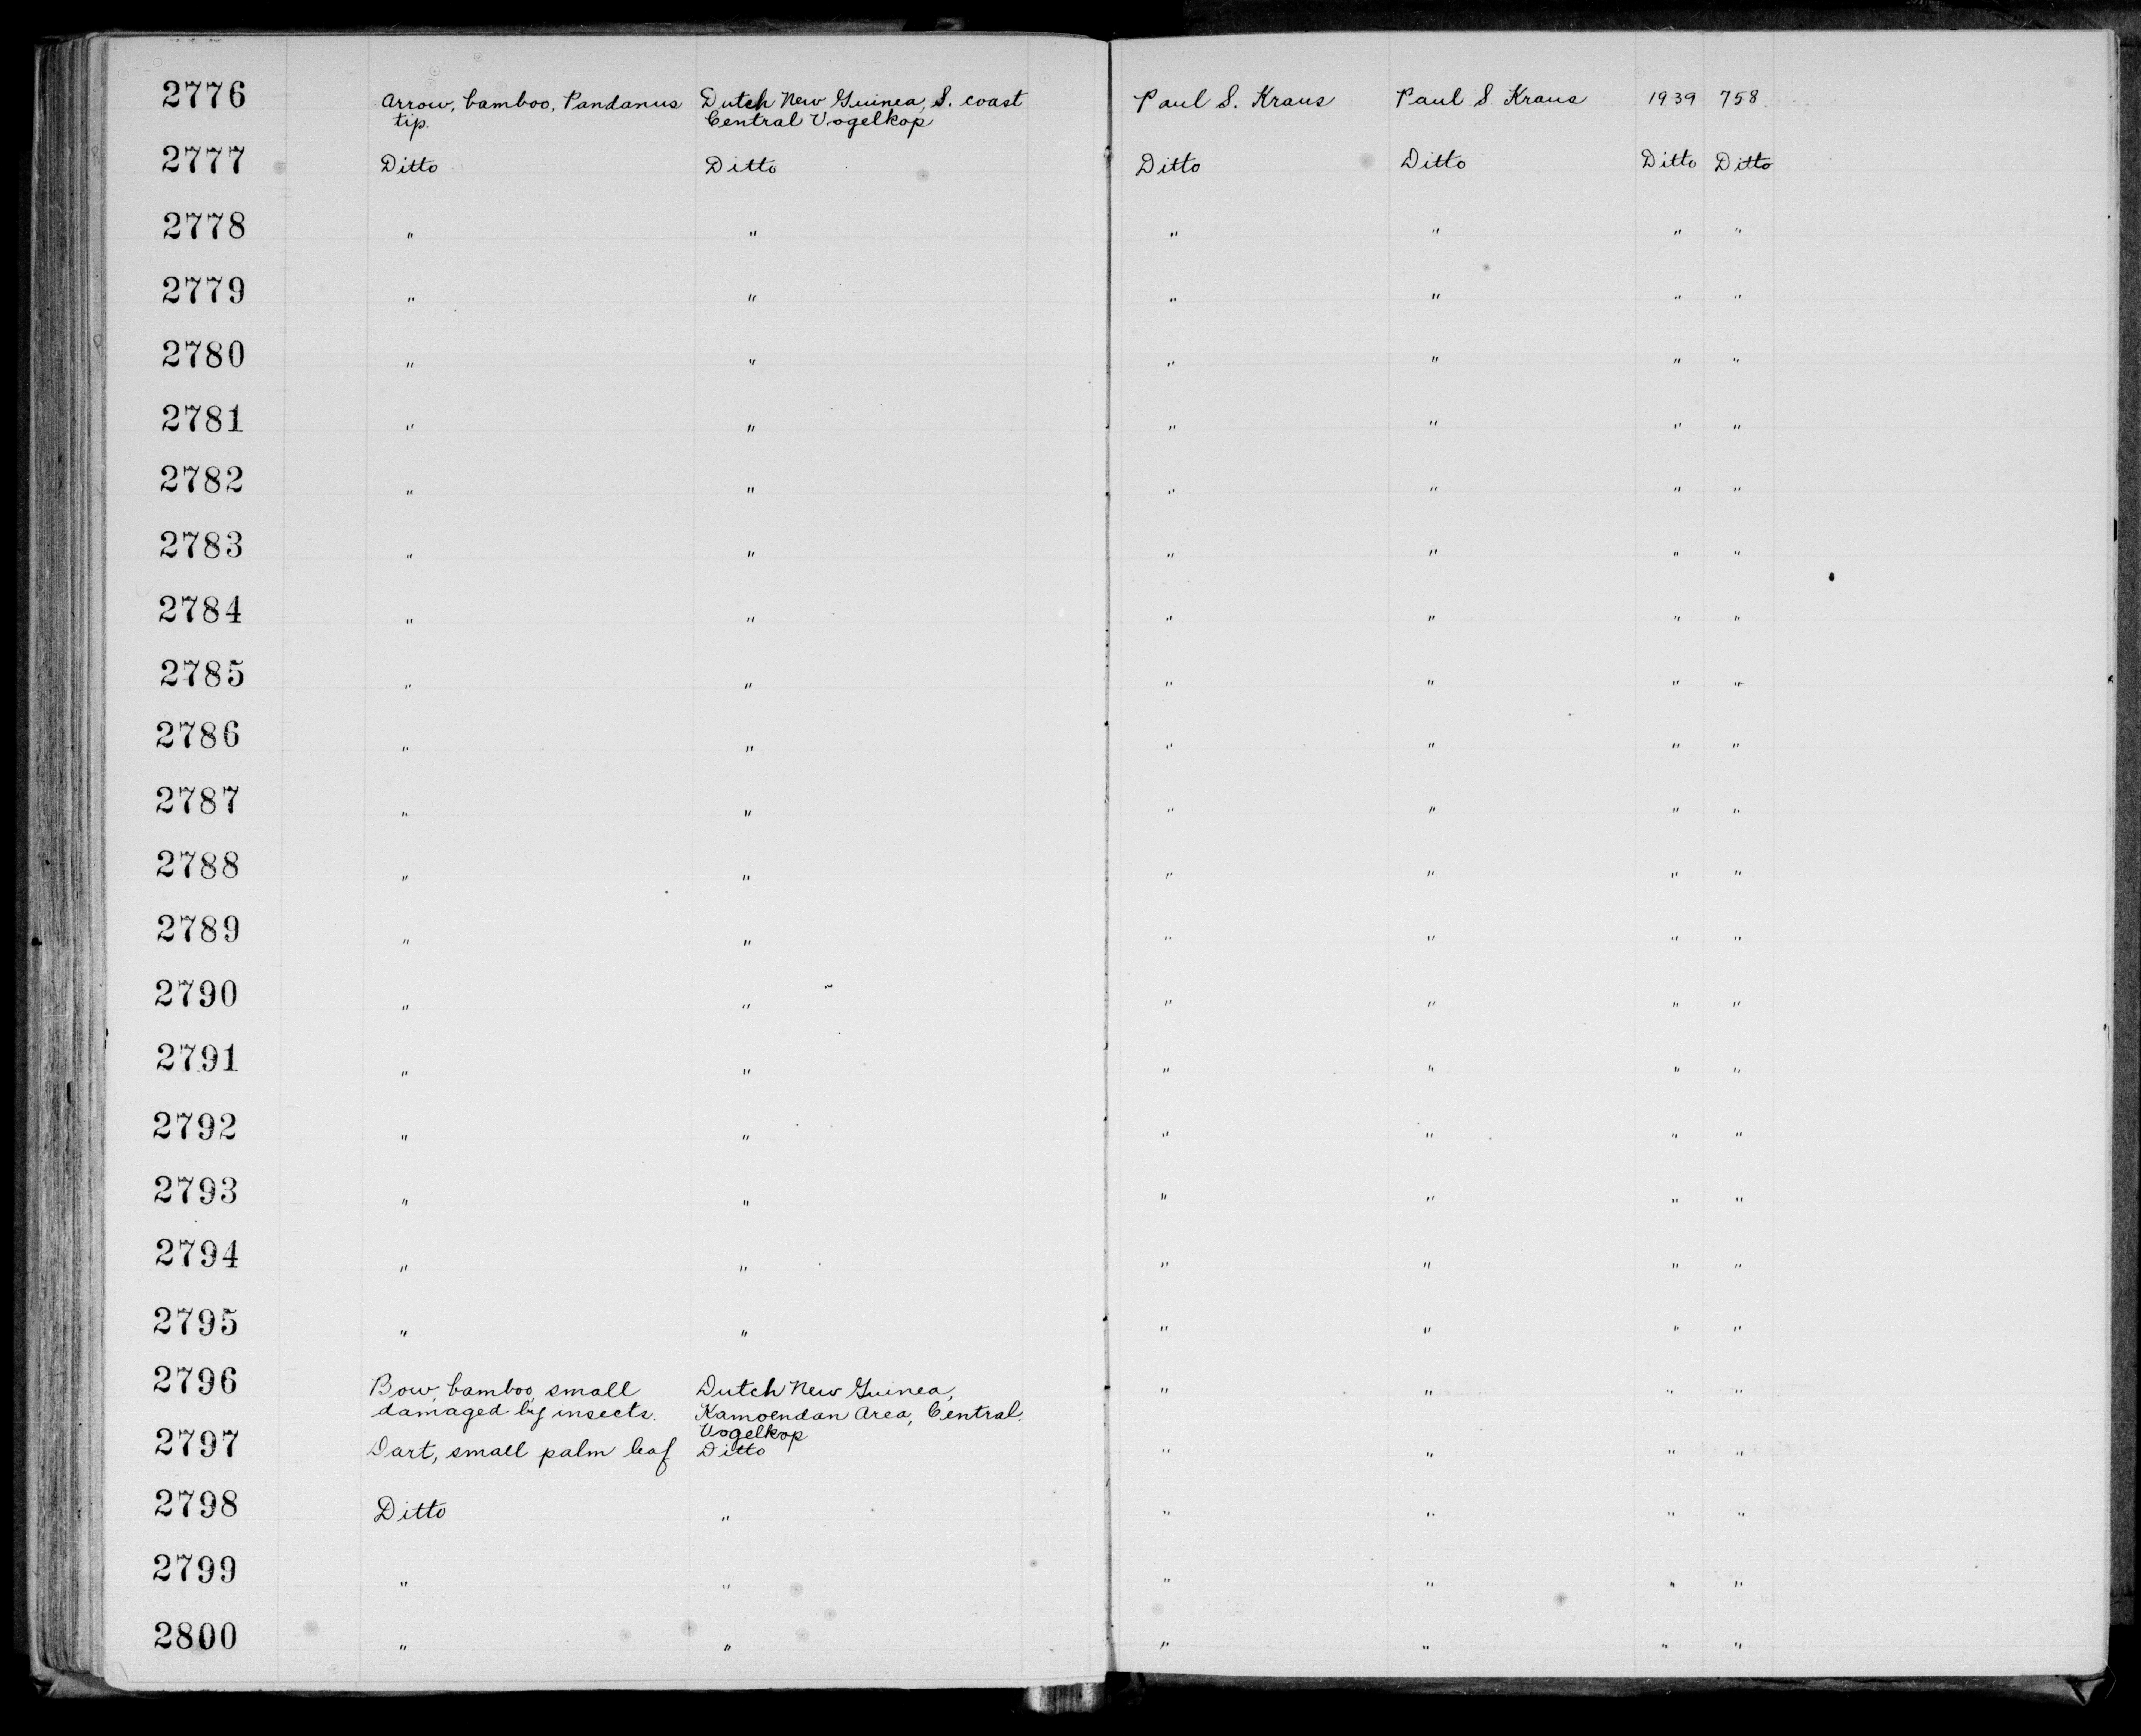 2776 Arrow, bamboo, Pandanus Dutch New Guinea, S. coast Paul S. Kraus Paul S Kraus 1939 758
tip. Central Vogelkop
2777 Ditto Ditto Ditto Ditto Ditto Ditto
2778 " " " " " "
2779 " " " " " "
2780 " " " " " "
2781 " " " " " "
2782 " " " " " "
2783 " " " " " "
2784 " " " " " "
2785 " " " " " "
2786 " " " " " "
2787 " " " " " "
2788 " " " " " "
2789 " " " " " "
2790 " " " " " "
2791 " " " " " "
2792 " " " " " "
2793 " " " " " "
2794 " " " " " "
2795 " " " " " "
2796 Bow, bamboo, small Dutch New Guinea, " " " "
damaged by insects. Kamoendan Area, Central
Vogelkop
2797 Dart, small palm leaf Ditto " " " "
2798 Ditto " " " " "
2799 " " " " " "
2800 " " " " " "